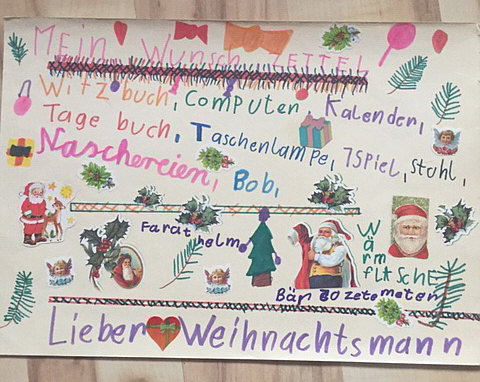 MEIN WUNSCHZETTEL
Witzbuch, Computer, Kalender,
Tage buch, Taschenlampe, 1 Spiel, stuhl,
Naschereien, Bob,
Farat helm
Wärm flasche
Bär 80 zetemeter
Lieber Weihnachtsmann